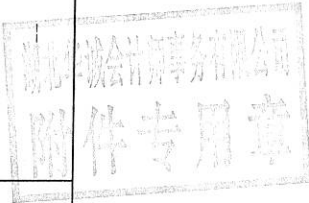 湖北诚会计师事务有限公司
附件专用章